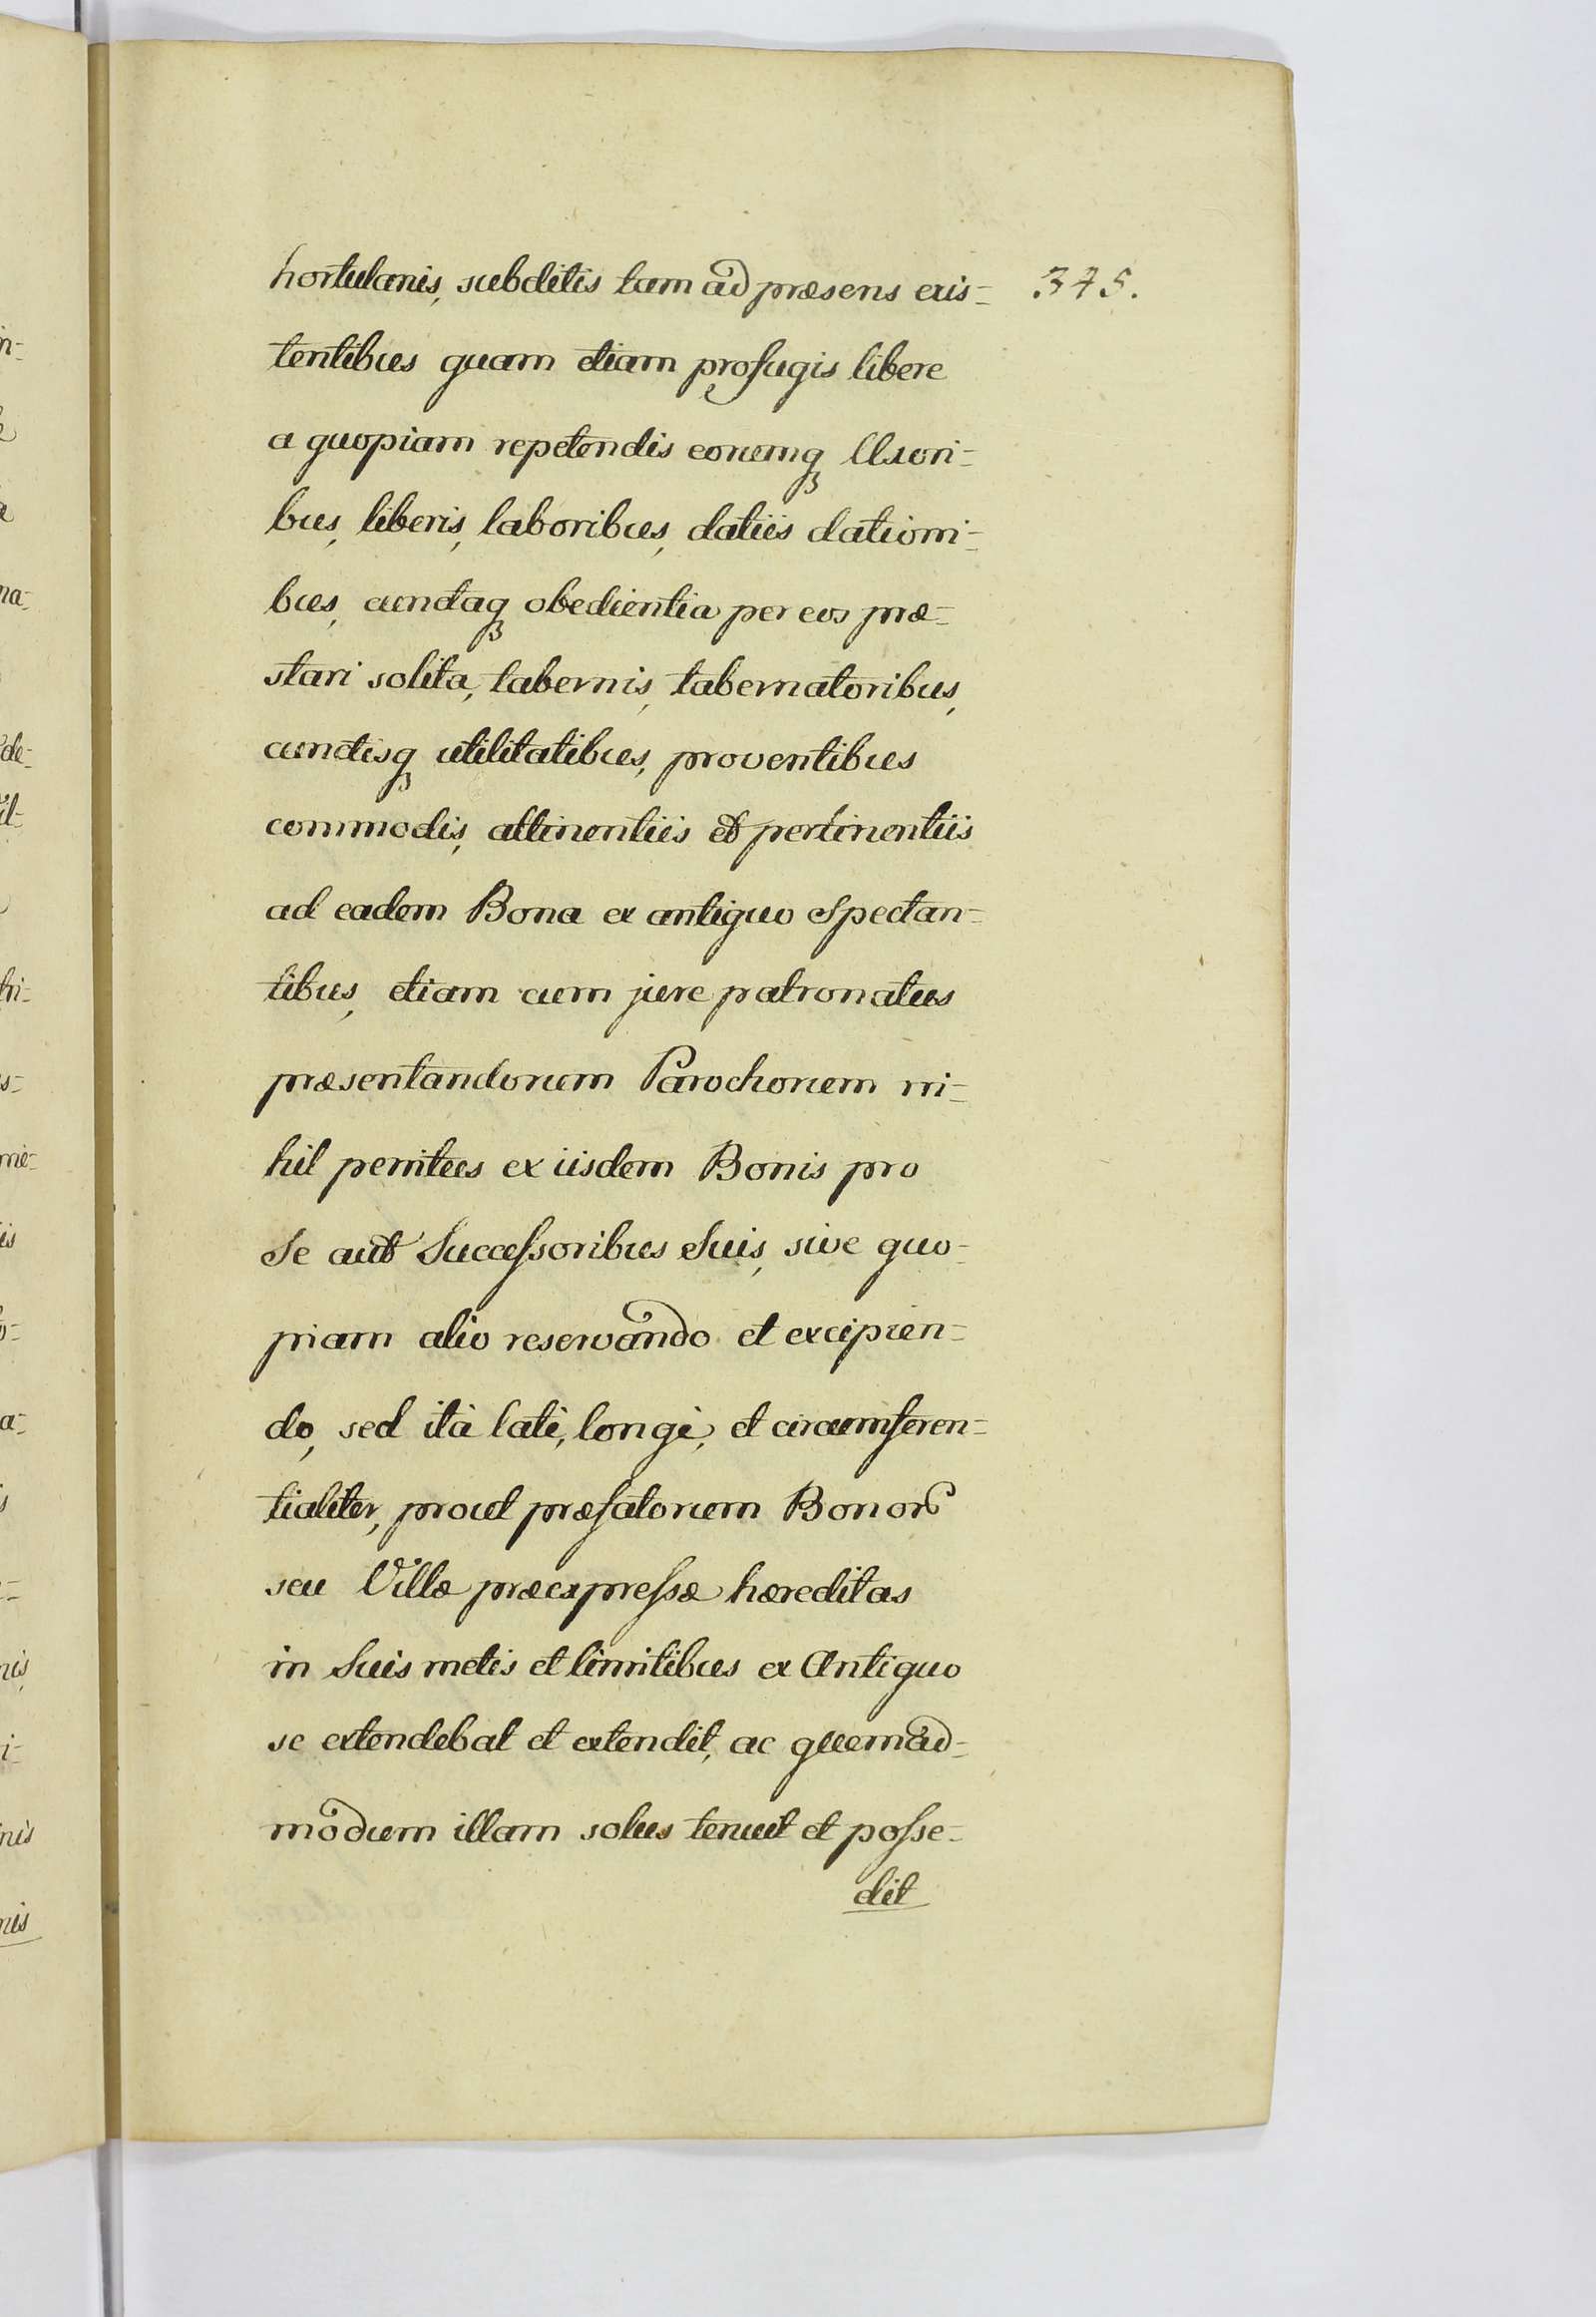 hortulanis, subditis tam ad præsens exis=
375.
tentibus quam etiam profugis libere
a quopiam repetendis eorumq₃ Uxori=
bus, liberis, laboribus, datiis dationi=
bus, cunctaq₃ obedientia per eos præ=
stari solita, tabernis, tabernatoribus,
cunctisq₃ utilitatibus, proventibus
commodis, attinentiis et pertinentiis
ad eadem Bona ex antiquo Spectan=
tibus, etiam cum jure patronatus
præsentandorum Parochorum ni=
hil penitus ex iisdem Bonis pro
Se aut Succeſsoribus Suis, sive quo=
piam alio reservando et excipien=
do, sed ità latè, longè, et circumferen=
tialiter, prout præfatorum Bonor
seu Villæ præexpreſsæ hæreditas
in Suis metis et limitibus ex Antiquo
se extendebat et extendit, ac quemad=
modum illam solus tenuit et poſse=
dit
n=
na=
de=
it=
hi=
s=
me=
is
o=
a=
nis,
i=
nis
nis